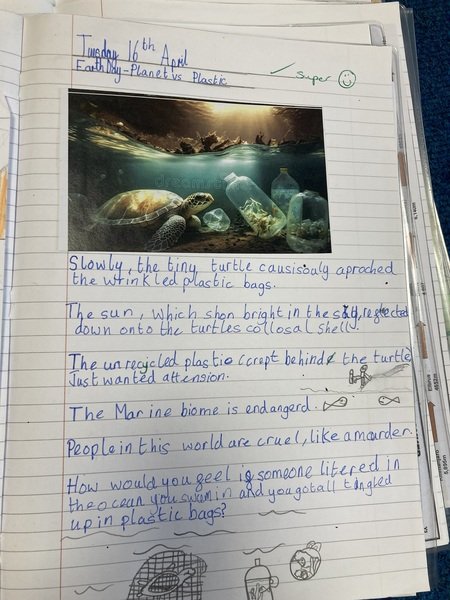 Tuesday 16th April
Earth Day - Planet vs Plastic
✓ Super
dreamstime
Slowly, the tiny turtle causisouly aproached
the wrinkled plastic bags.
The sun, which shon bright in the sky, reflected
down onto the turtles collosal shell.
The unrecycled plastic crept behind the turtle
Just wanted attension.
The Marine biome is endangerd.
People in this world are cruel, like a mourder.
How would you feel if someone litered in
the ocean you swum in and you got all tangled
up in plastic bags?